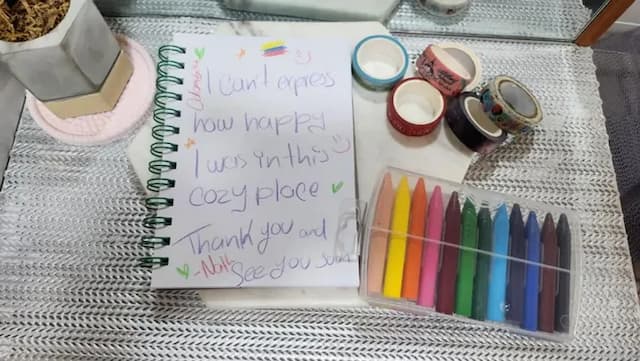 I can't express
how happy
I was in this
cozy place
Thank you and
See you